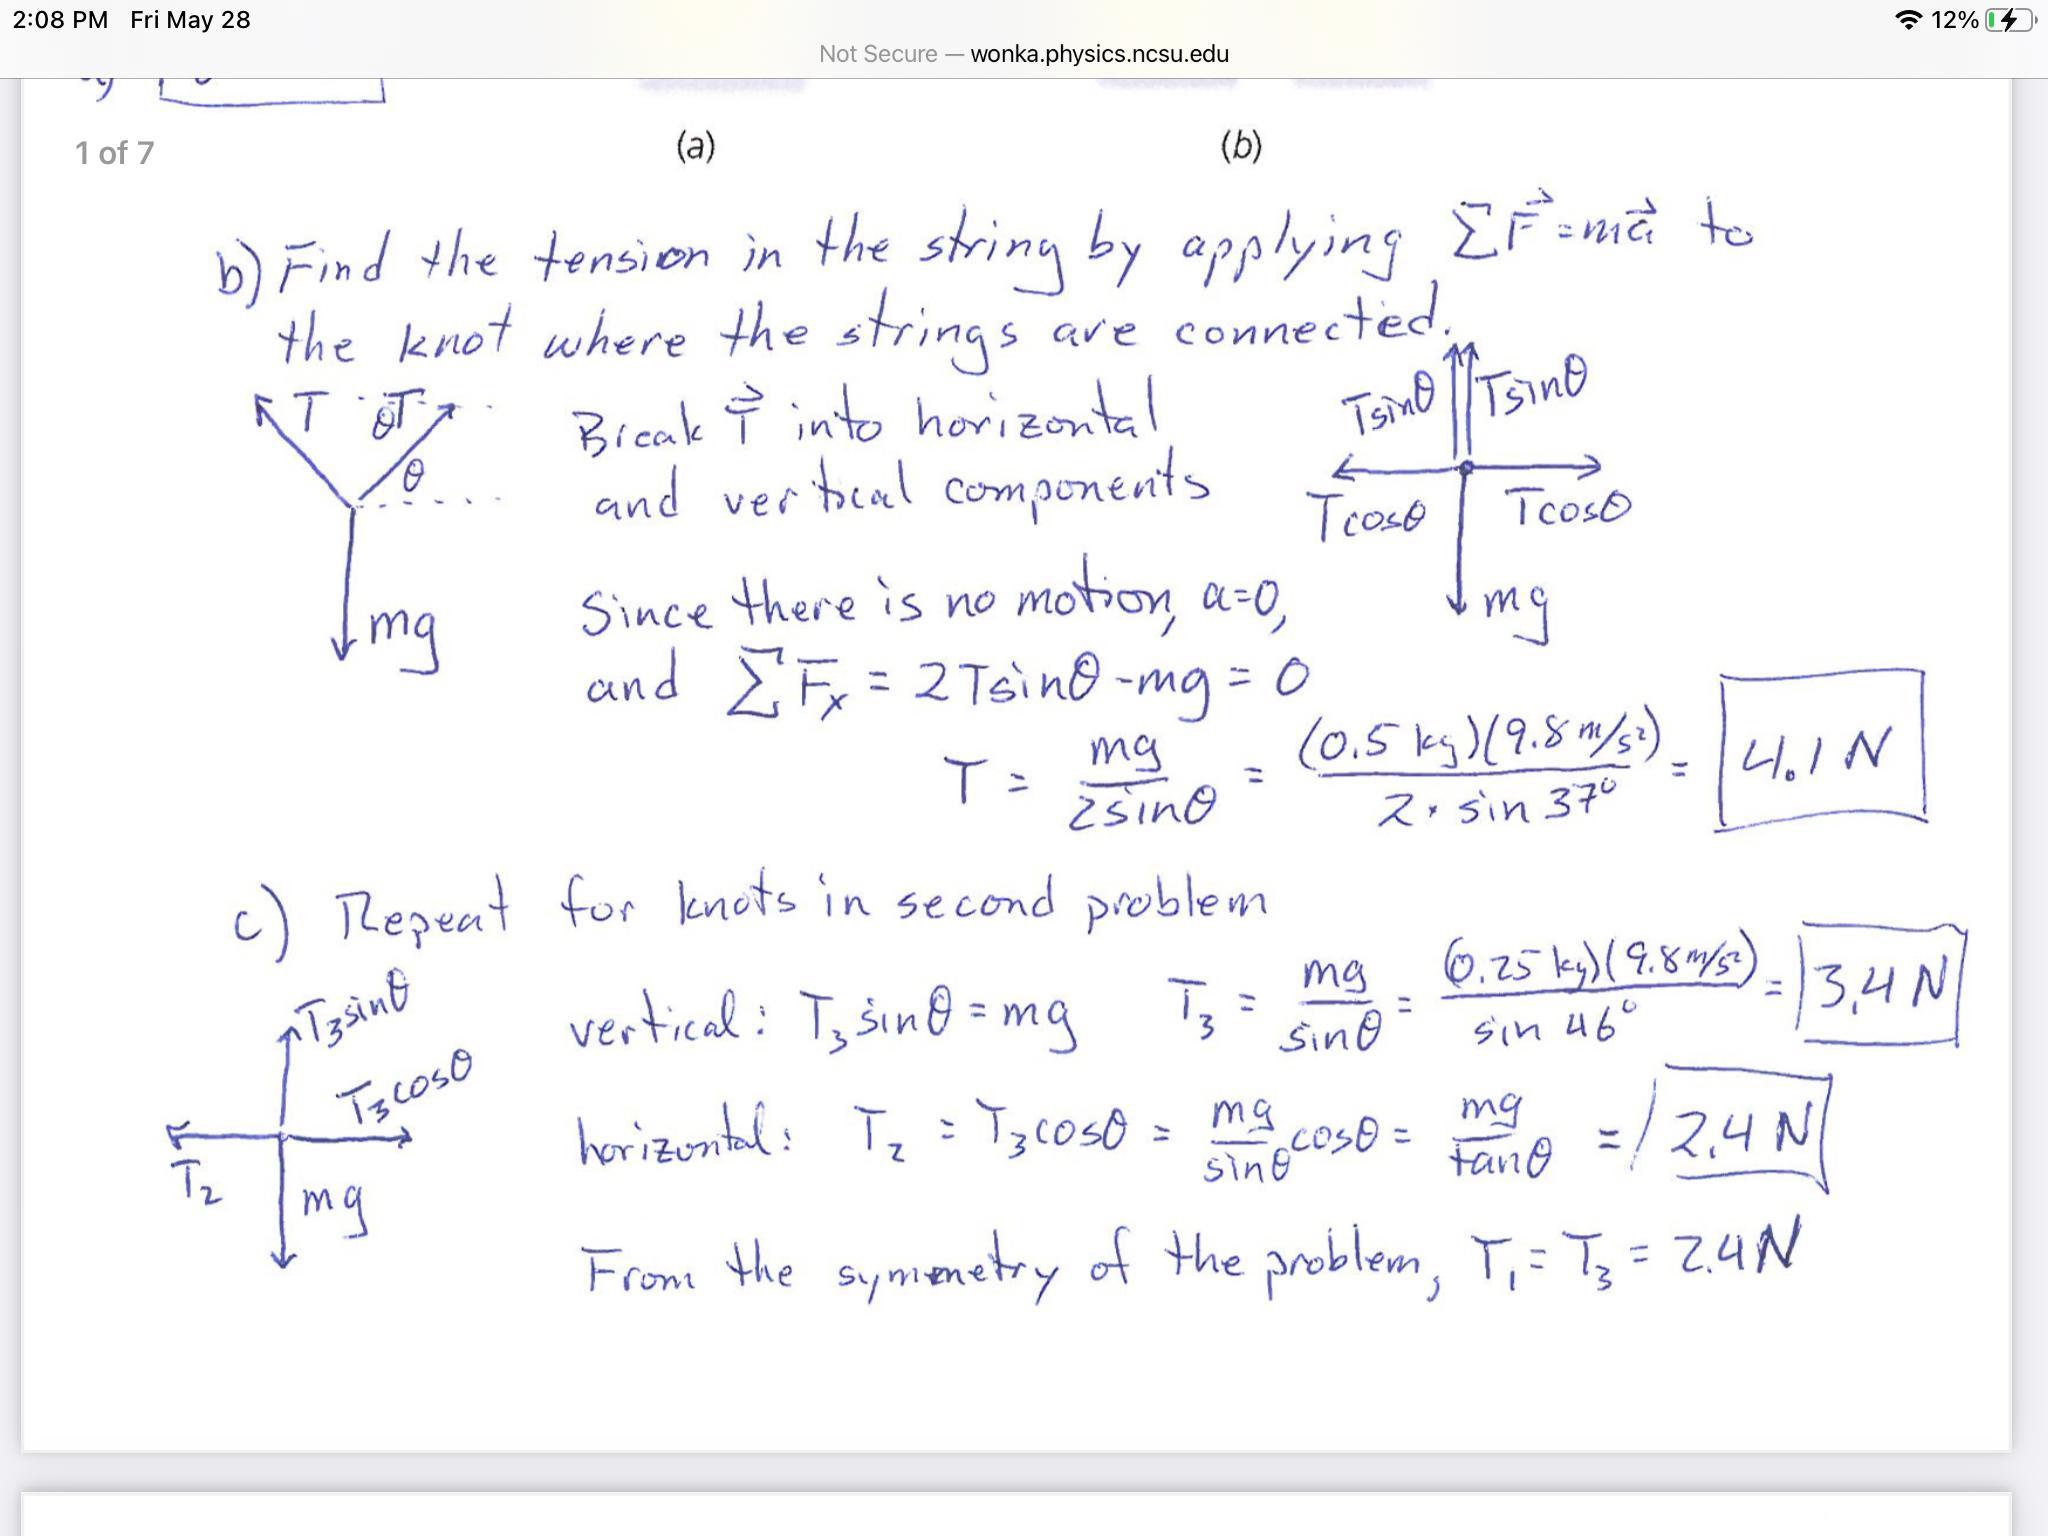 2:08 PM Fri May 28
12%
Not Secure — wonka.physics.ncsu.edu
1 of 7
(a) (b)
b) Find the tension in the string by applying ΣF⃗ = ma⃗ to
the knot where the strings are connected.
T θ T θ mg
Break T⃗ into horizontal
and vertical components
Tsinθ Tsinθ
Tcosθ Tcosθ
mg
Since there is no motion, a=0,
and ΣFx = 2Tsinθ - mg = 0
T = mg / 2sinθ = (0.5 kg)(9.8 m/s²) / 2 · sin 37° = 4.1 N
c) Repeat for knots in second problem
T3sinθ
T3cosθ
T2
mg
vertical: T3 sinθ = mg T3 = mg / sinθ = (0.25 kg)(9.8 m/s²) / sin 46° = 3.4 N
horizontal: T2 = T3cosθ = mg / sinθ cosθ = mg / tanθ = 2.4 N
From the symmetry of the problem, T1 = T3 = 2.4 N